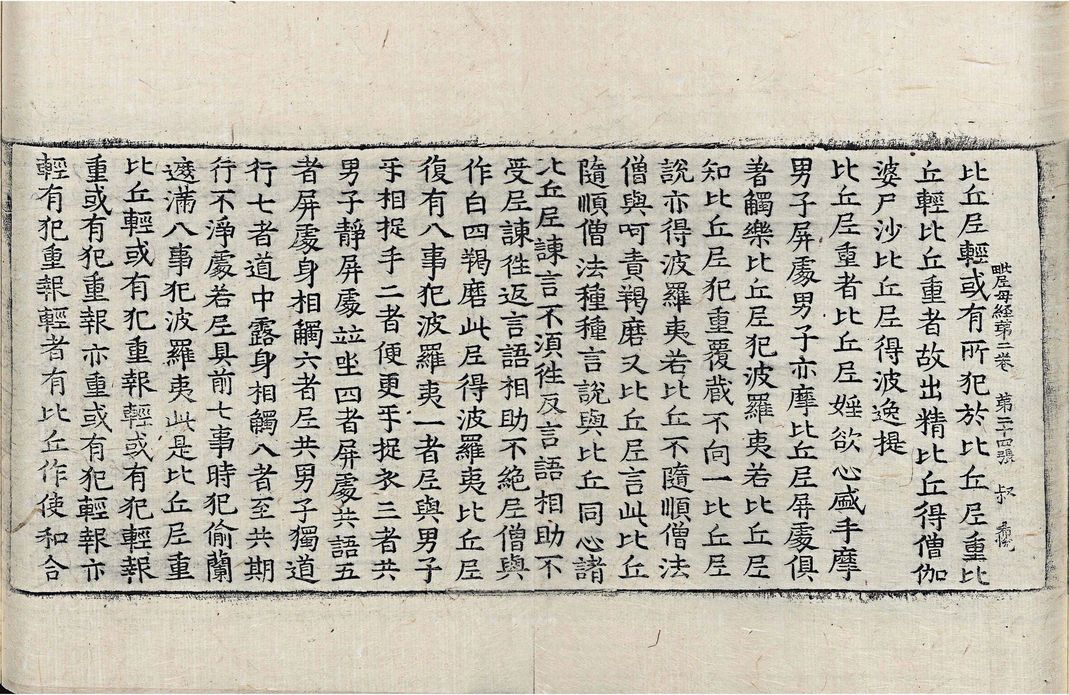 毗尼母経第二卷 第二十四張 叔
比丘尼輕或有所犯於比丘尼重比
丘輕比丘重者故出精比丘得僧伽
婆尸沙比丘尼得波逸提
比丘尼重者比丘尼婬欲心盛手摩
男子屏處男子亦摩比丘尼屏處俱
著觸樂比丘尼犯波羅夷若比丘尼
知比丘尼犯重覆蔵不向一比丘尼
說亦得波羅夷若比丘不隨順僧法
僧與呵責羯磨又比丘尼言此比丘
隨順僧法種種言說與比丘同心諸
比丘尼諫言不湏徃反言語相助不
受尼諫徃返言語相助不絶尼僧與
作白四羯磨此尼得波羅夷比丘尼
復有八事犯波羅夷一者尼與男子
手相捉手二者便更手捉衣三者共
男子靜屏處竝坐四者屏處共語五
者屏處身相觸六者尼共男子獨道
行七者道中露身相觸八者至共期
行不淨處若尼具前七事時犯偷蘭
遮滿八事犯波羅夷此是比丘尼重
比丘輕或有犯重報輕或有犯輕報
重或有犯重報亦重或有犯輕報亦
輕有犯重報輕者有比丘作使和合